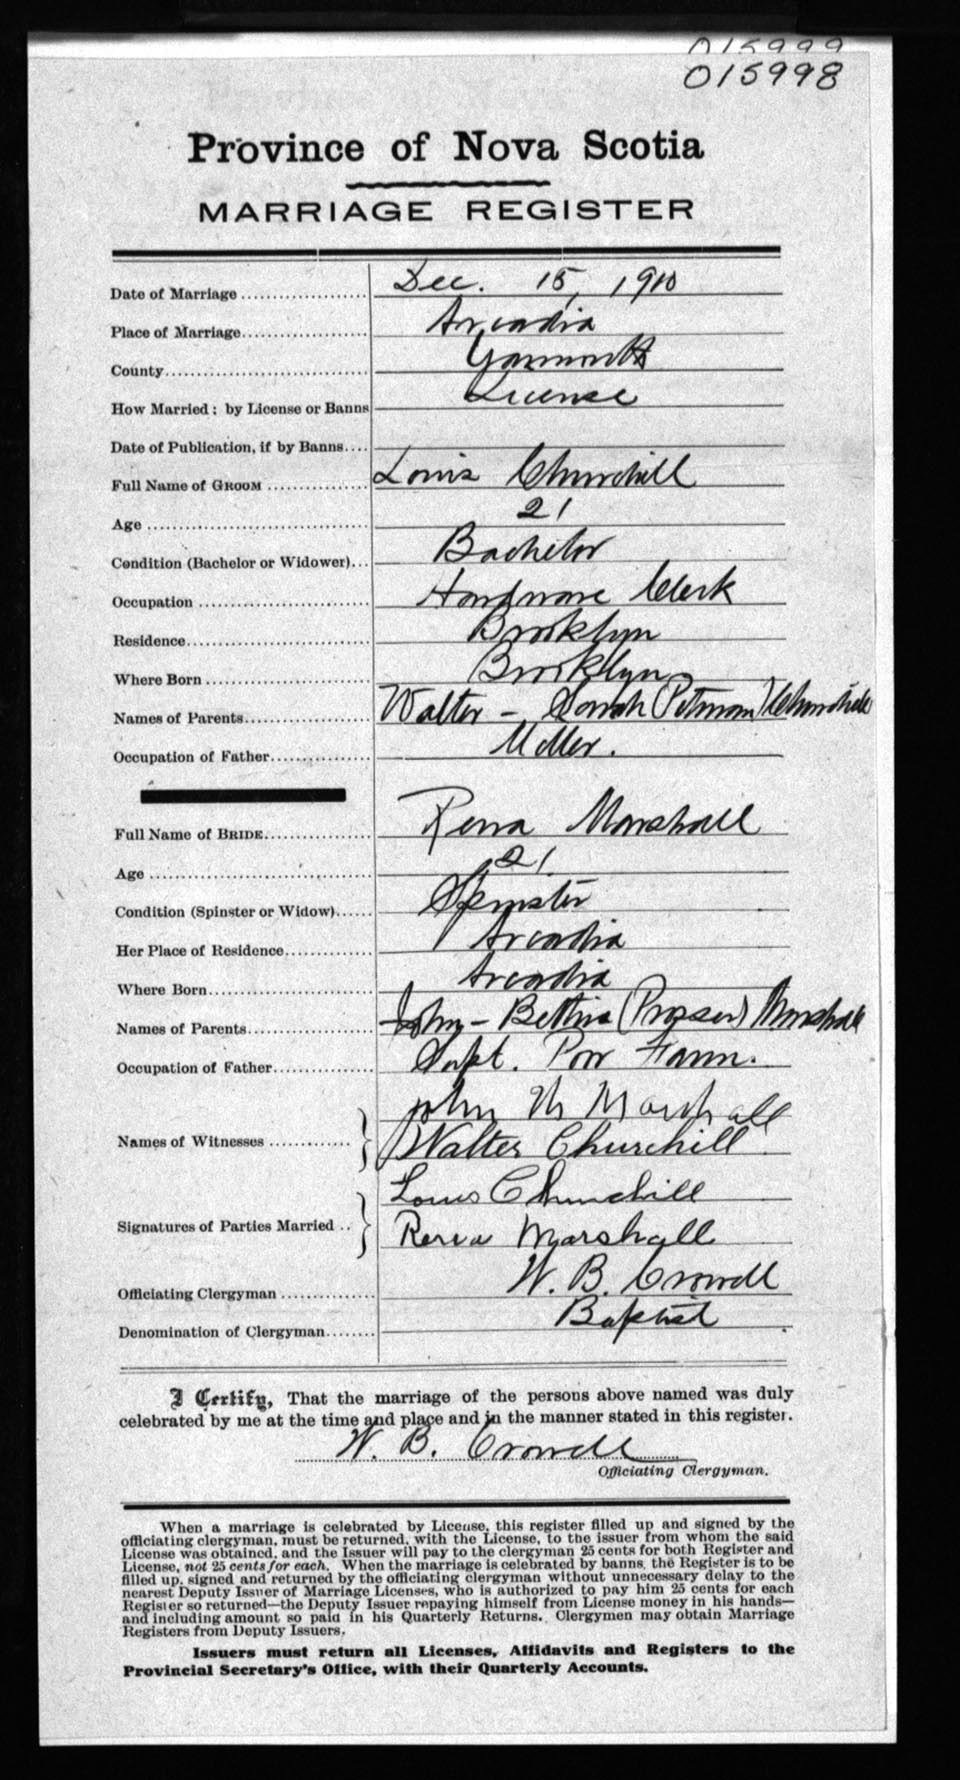 015999
015998
Province of Nova Scotia
MARRIAGE REGISTER
Date of Marriage .................... Dec. 15, 1910
Place of Marriage.................... Arcadia
County.................... Yarmouth
How Married: by License or Banns License
Date of Publication, if by Banns....
Full Name of GROOM .................... Louis Churchill
Age .................... 21
Condition (Bachelor or Widower)... Bachelor
Occupation .................... Hardware Clerk
Residence.................... Brooklyn
Where Born .................... Brooklyn
Names of Parents.................... Walter - Sarah (Pitman) Churchill
Occupation of Father.................... Miller.
Full Name of BRIDE.................... Rena Marshall
Age .................... 21
Condition (Spinster or Widow)...... Spinster
Her Place of Residence.................... Arcadia
Where Born.................... Arcadia
Names of Parents.................... John - Bethia (Prosser) Marshall
Occupation of Father.................... Supt. Poor Farm.
John M Marshall
Names of Witnesses ............ Walter Churchill
Louis Churchill
Signatures of Parties Married .. Rena Marshall
Officiating Clergyman .................... W. B. Crowell
Denomination of Clergyman........ Baptist
I Certify, That the marriage of the persons above named was duly
celebrated by me at the time and place and in the manner stated in this register.
W. B. Crowell
Officiating Clergyman.
When a marriage is celebrated by License, this register filled up and signed by the
officiating clergyman, must be returned, with the License, to the issuer from whom the said
License was obtained, and the Issuer will pay to the clergyman 25 cents for both Register and
License, not 25 cents for each. When the marriage is celebrated by banns, the Register is to be
filled up, signed and returned by the officiating clergyman without unnecessary delay to the
nearest Deputy Issuer of Marriage Licenses, who is authorized to pay him 25 cents for each
Register so returned—the Deputy Issuer repaying himself from License money in his hands—
and including amount so paid in his Quarterly Returns. Clergymen may obtain Marriage
Registers from Deputy Issuers.
Issuers must return all Licenses, Affidavits and Registers to the
Provincial Secretary's Office, with their Quarterly Accounts.